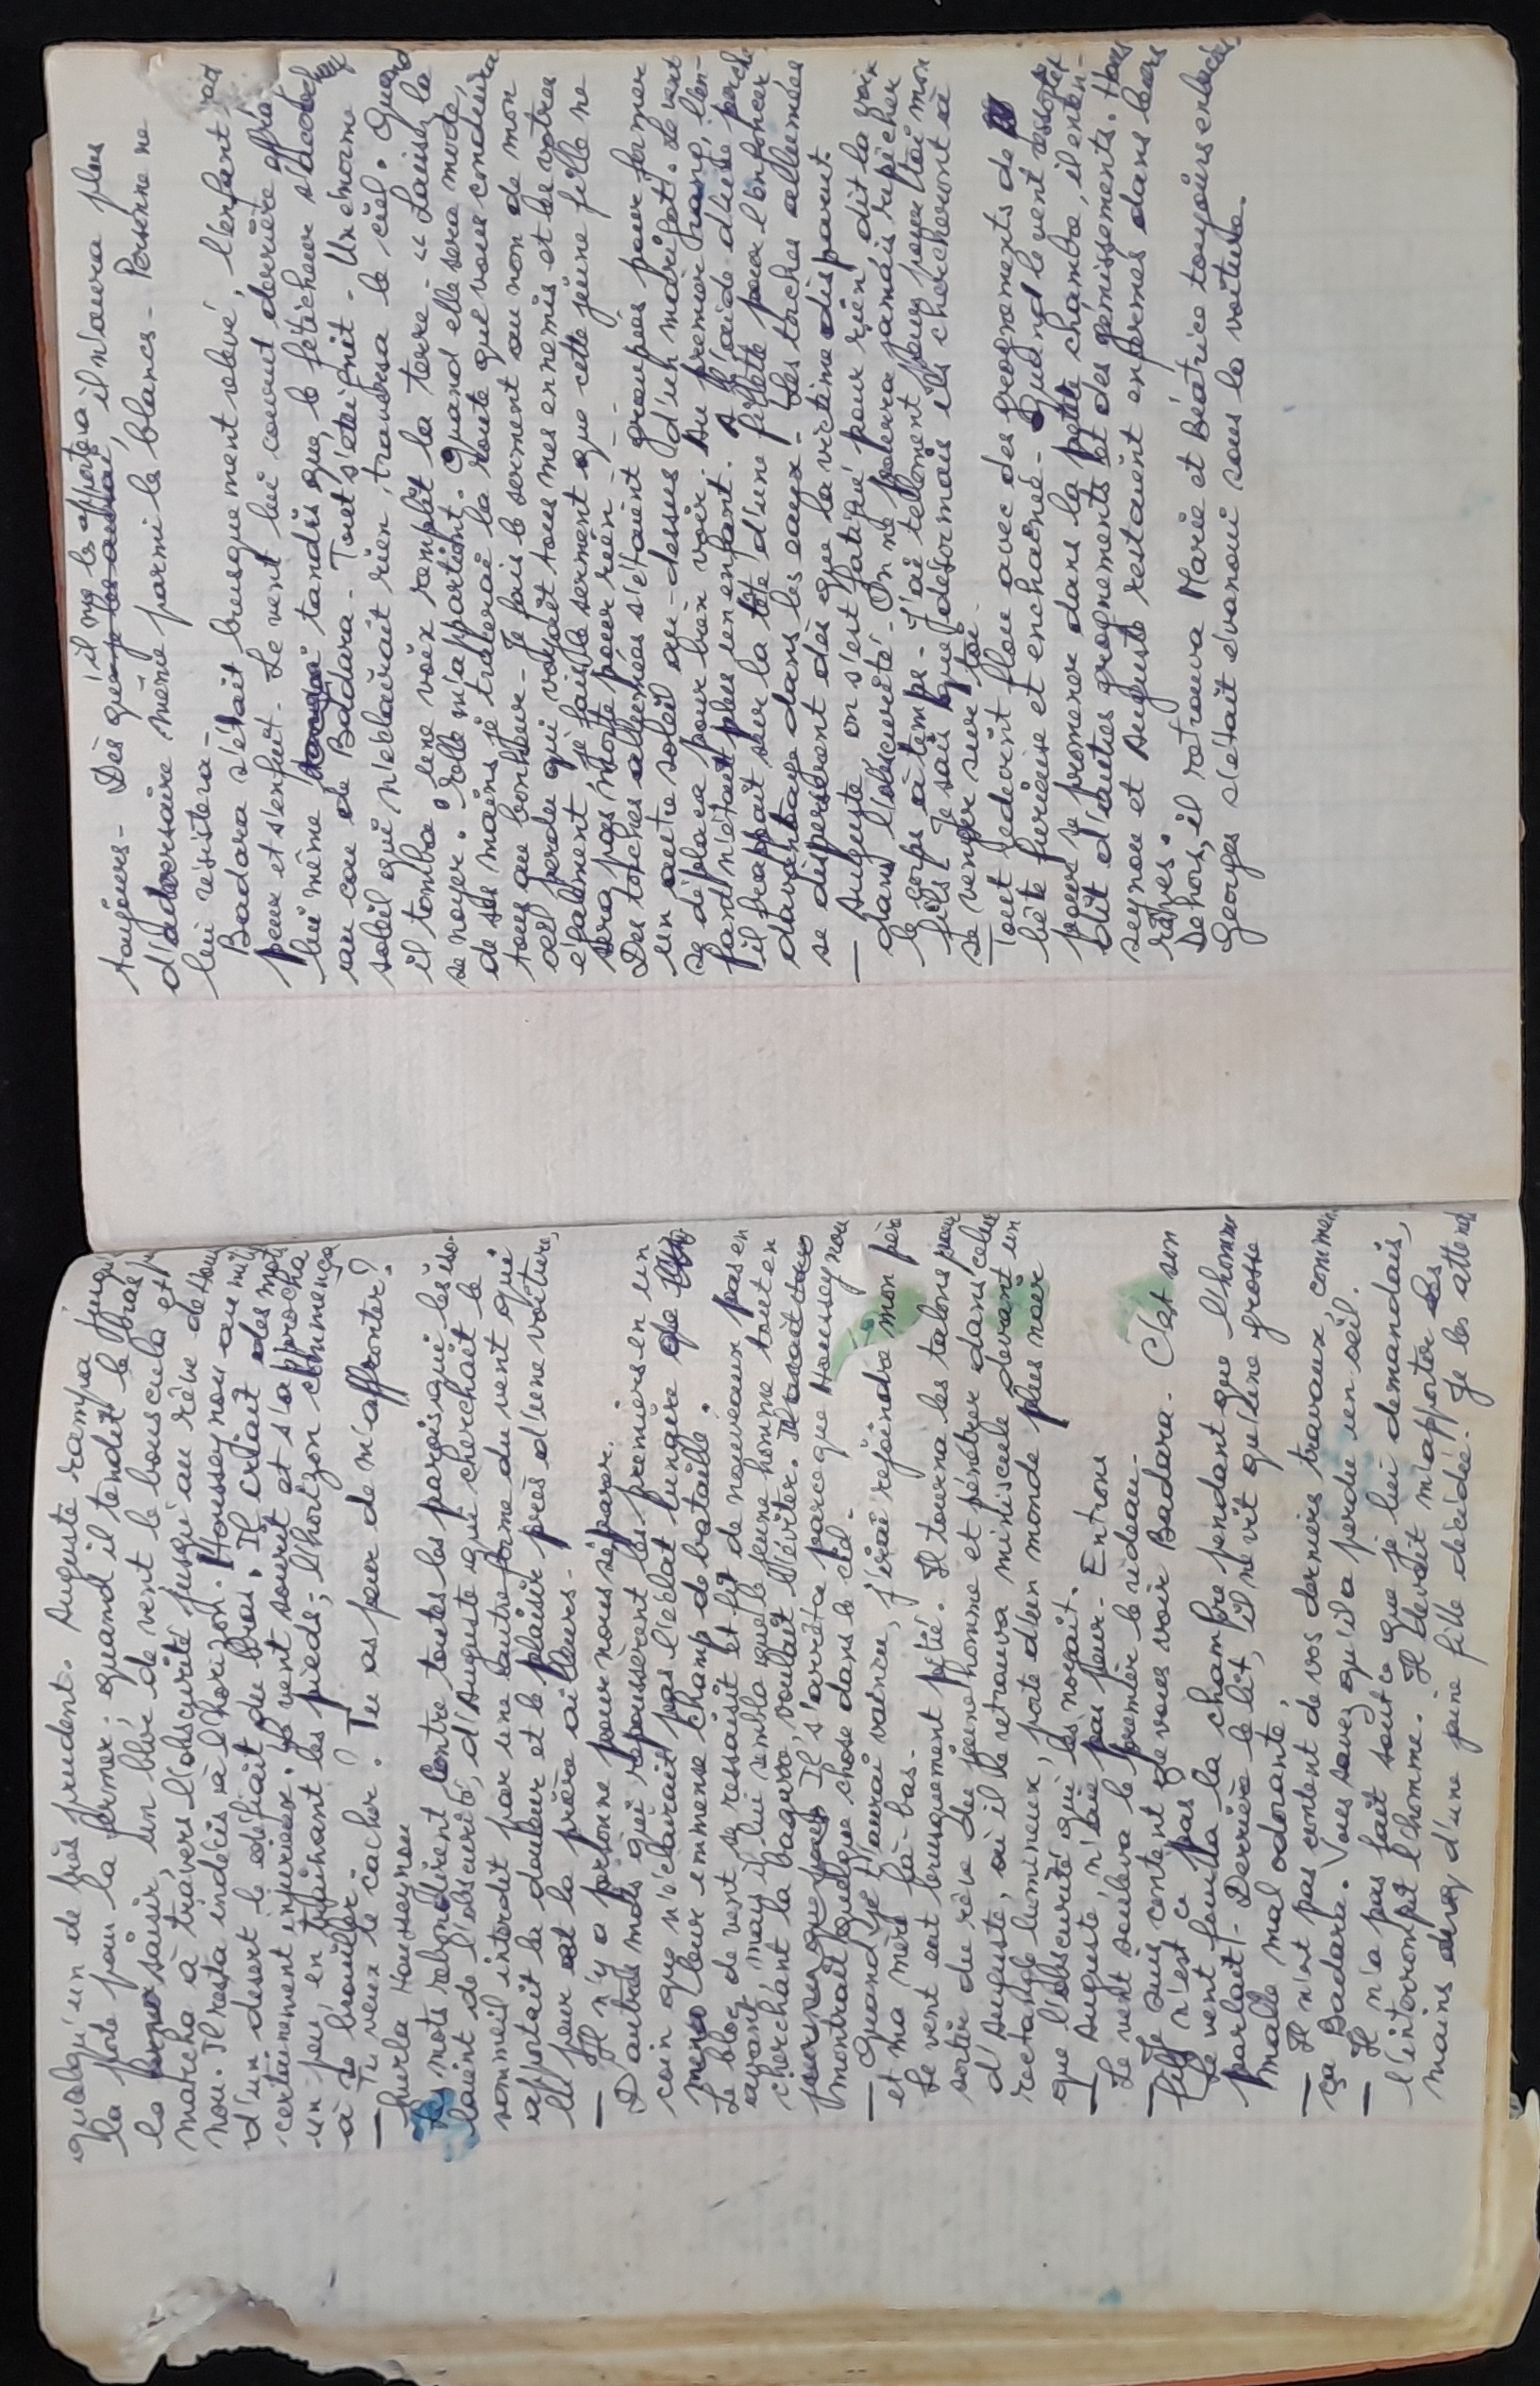 quelqu'un de très prudent. Auguste rampa jusqu'
la porte pour la fermer ; quand il tendit le bras
le saisir, un bloc de vent le bouscula et
marcha à travers l'obscurité jusqu'au rêve de Housey
nou. Il resta indécis à l'horizon. Housseynou au mili
d'un désert le défiait du bras. Il criait des mots
certainement injurieux. Le vent sourit et s'approcha
un peu, en traînant les pieds ; l'horizon commença
à se brouiller.
— Tu veux te cacher ? Tu as peur de m'affronter ?
hurla Housseynou
Les mots rebondirent contre toutes les parois qui les iso-
laient de l'obscurité, d'Auguste qui cherchait le
sommeil interdit par une autre forme du vent qui
apportait la douleur et le plaisir près d'une voiture,
la peur et la prière ailleurs.
— Il n'y a personne pour nous séparer.
D'autres mots qui repoussèrent les premiers en un
coin que n'éclairait pas l'éclat lunaire de
leur immense champ de bataille.
Le bloc de vent se ressaisit et fit de nouveaux pas en
avant mais il lui sembla que le jeune homme tout en
cherchant la bagarre, voulait l'éviter.
Il s'arrêta parce que Housseynou
montrait quelque chose dans le ciel -
— Quand je t'aurai vaincu, j'irai rejoindre mon père
et ma mère là-bas -
Le vent eut brusquement pitié. Il tourna les talons pour
sortir du rêve du jeune homme et pénétrer dans celui
d'Auguste, où il se retrouva minuscule devant un
rectangle lumineux, porte d'un monde plus noir
que l'obscurité qui les noyait.
— Auguste, n'aie pas peur - Entrons
Le vent souleva le premier le rideau -
— Je suis content de vous voir Badara - C'est son
fils n'est ce pas ?
Le vent fouilla la chambre pendant que l'homme
parlait - Derrière le lit, il ne vit qu'une grosse
malle mal odorante,
— Il n'est pas content de vos derniers travaux, commen
ça Badara. Vous savez qu'il a perdu un œil.
— Il n'a pas fait tout ce que je lui demandais,
l'interrompit l'homme. Il devait m'apporter les
mains d'une jeune fille décédée. Je les attends
toujours - Dès qu'il me les apportera il n'aura plus
d'adversaire même parmi les blancs - Personne ne
lui résistera -
Badara s'était brusquement levé, l'enfant
peur et s'enfuit - Le vent lui courut derrière
lui même tandis que le féticheur
au cou de Baddara - Tout s'éteignit - Un énorme
soleil qui n'éclairait rien, traversa le ciel. Quand
il tomba, une voix remplit la terre - « Laissez la
se noyer. Elle m'appartient. Quand elle sera morte,
de ses mains je tracerai la route qui vous conduira
tous au bonheur - Je fais le serment au nom de mon
œil perdu qui voyait tous mes ennemis et les votres
également je fais le serment que cette jeune fille ne
sera pas morte pour rien -
Des torches allumées s'étaient groupées pour former
un autre soleil au-dessus d'un marigot. Le vent
se déplaça pour bien voir. Au premier rang, l'en-
fant n'était plus un enfant. A l'aide d'une perche
il frappait sur la tête d'une fillette pour l'enfoncer
davantage dans les eaux - Les torches allumées
se dispersèrent dès que la victime disparut.
— Auguste on s'est fatigué pour rien dit la voix
dans l'obscurité - On ne pourra jamais repêcher
le corps à temps - J'ai tellement peur pour toi mon
fils ! Je sais que désormais ils chercheront à
se venger sur toi -
Tout redevint flou avec des grognements de
bête furieuse et enchaînée - Quand le vent ressortit
pour se promener dans la petite chambre, il enten-
dit d'autres grognements et des gémissements. Hous
seynou et Auguste restaient enfermés dans leurs
rêves.
Dehors, il retrouva Marie et Béatrice toujours enlacées
Georges s'était évanoui sous la voiture.